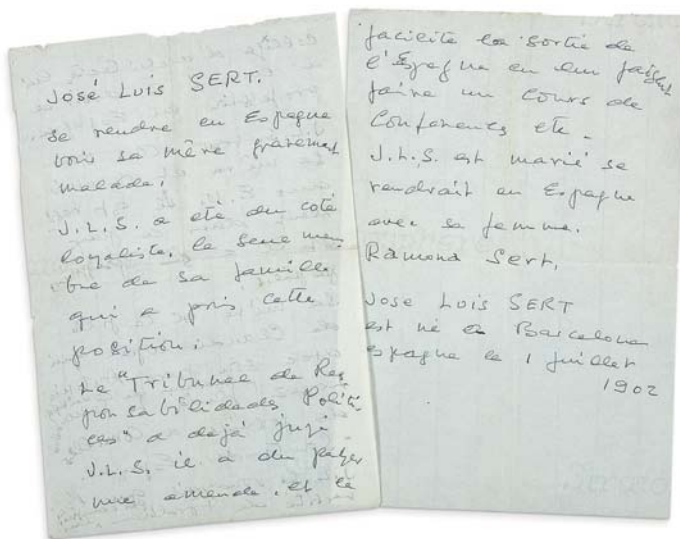 José Luis SERT.
se rendre en Espagne
voir sa mère gravement
malade.
J.L.S. a été du coté
loyaliste. le seul mem
bre de sa famille
qui a pris cette
position.
Le "Tribunal de Res
ponsabilidades Políti
cas" a dejà jugé
J.L.S. il a du payer
une amende. et la
facilite la sortie de
l'Espagne en lui faisant
faire un cours de
Conférences etc.
J.L.S. est marié se
rendrait en Espagne
avec sa femme.
Ramona Sert.
José Luis SERT
est né à Barcelone
Espagne le 1 juillet
1902